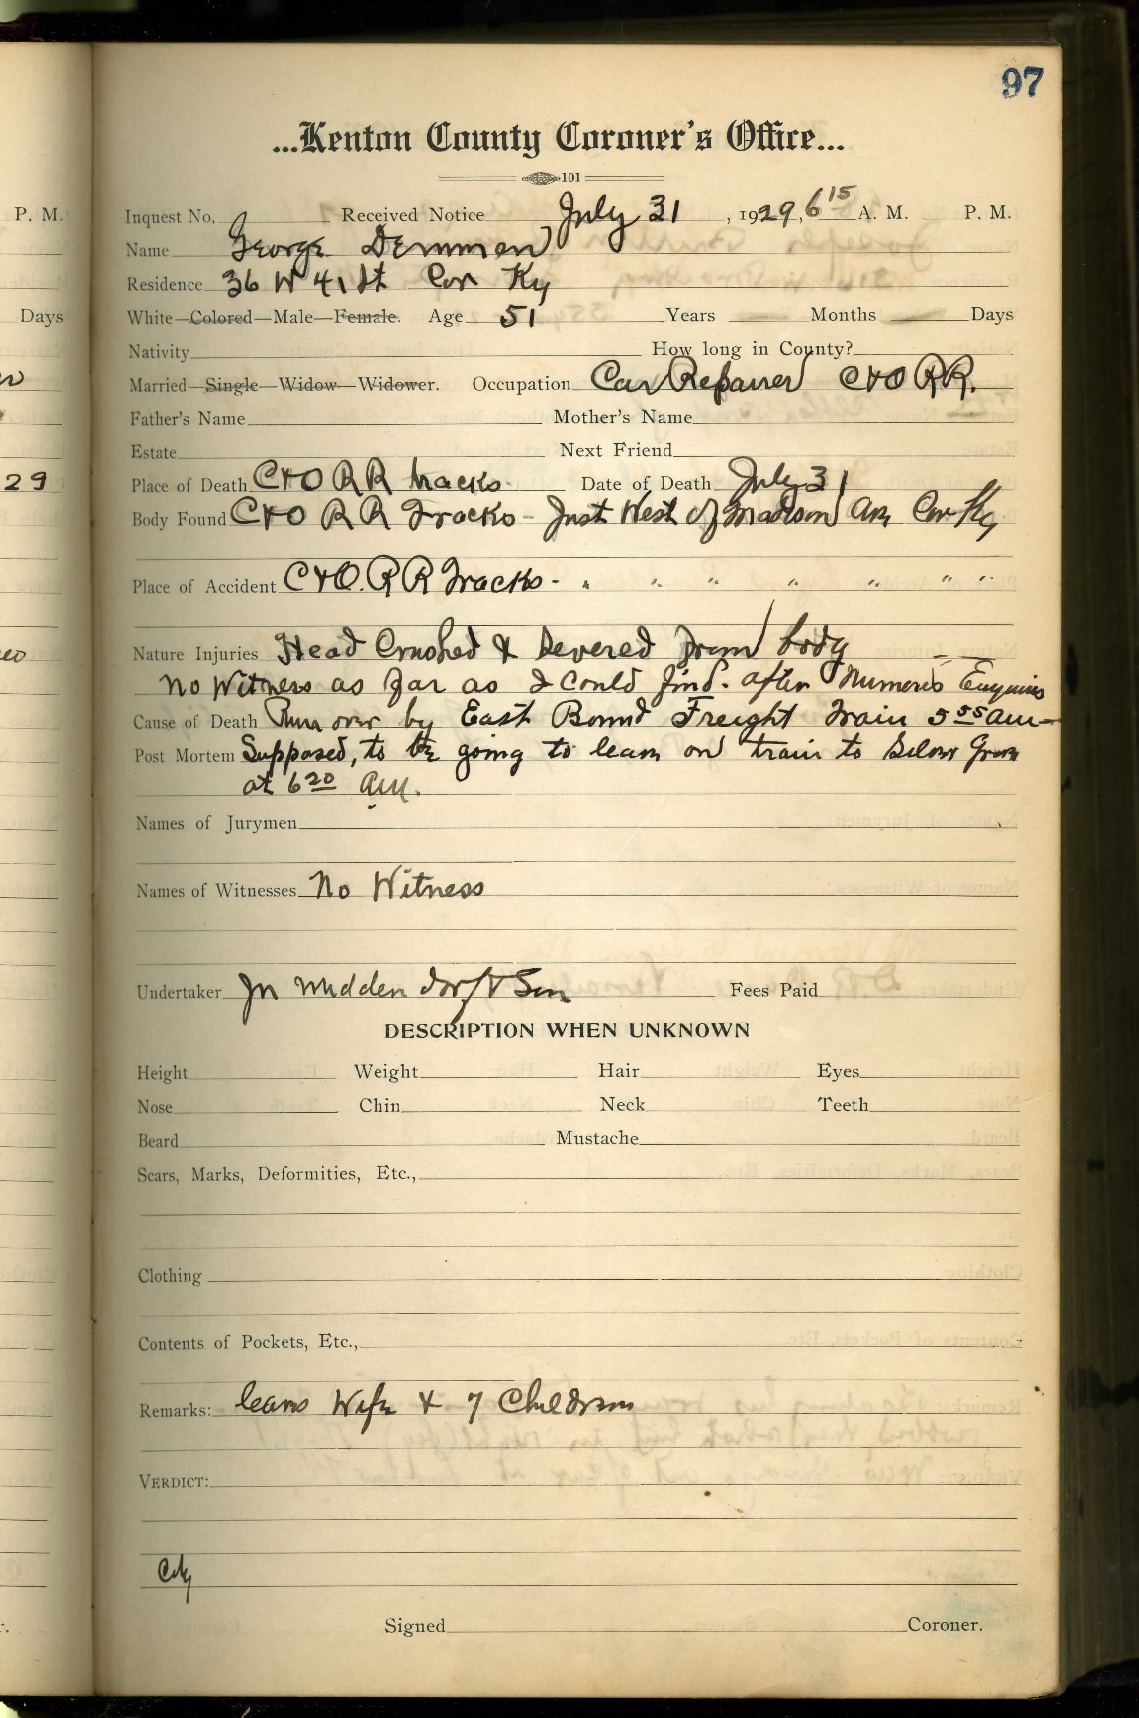 97
...Kenton County Coroner's Office...
101
P. M.
Inquest No. Received Notice July 31, 1929, 6 15 A. M. P. M.
Name George Demmen
Residence 36 W 41 St Cov Ky
Days
White—Colored—Male—Female. Age 51 Years — Months — Days
Nativity How long in County?
Married—Single—Widow—Widower. Occupation Car Repairer C & O RR.
Father's Name Mother's Name
Estate Next Friend
29
Place of Death C & O RR tracks - Date of Death July 31
Body Found C & O RR Tracks - Just West of Madison Ave Cov Ky
Place of Accident C & O. RR Tracks - " " " " " " "
Nature Injuries Head Crushed & Severed from body
No Witness as far as I could find. after Numerous Enquiries
Cause of Death Run over by East Bound Freight train 5 55 am -
Post Mortem Supposed, to be going to leave on train to Silver Grove
at 6 20 am.
Names of Jurymen
Names of Witnesses No Witness
Undertaker Jn Middendorf & Son Fees Paid
DESCRIPTION WHEN UNKNOWN
Height Weight Hair Eyes
Nose Chin Neck Teeth
Beard Mustache
Scars, Marks, Deformities, Etc.,
Clothing
Contents of Pockets, Etc.,
Remarks: leaves Wife & 7 Children
VERDICT:
City
Signed Coroner.